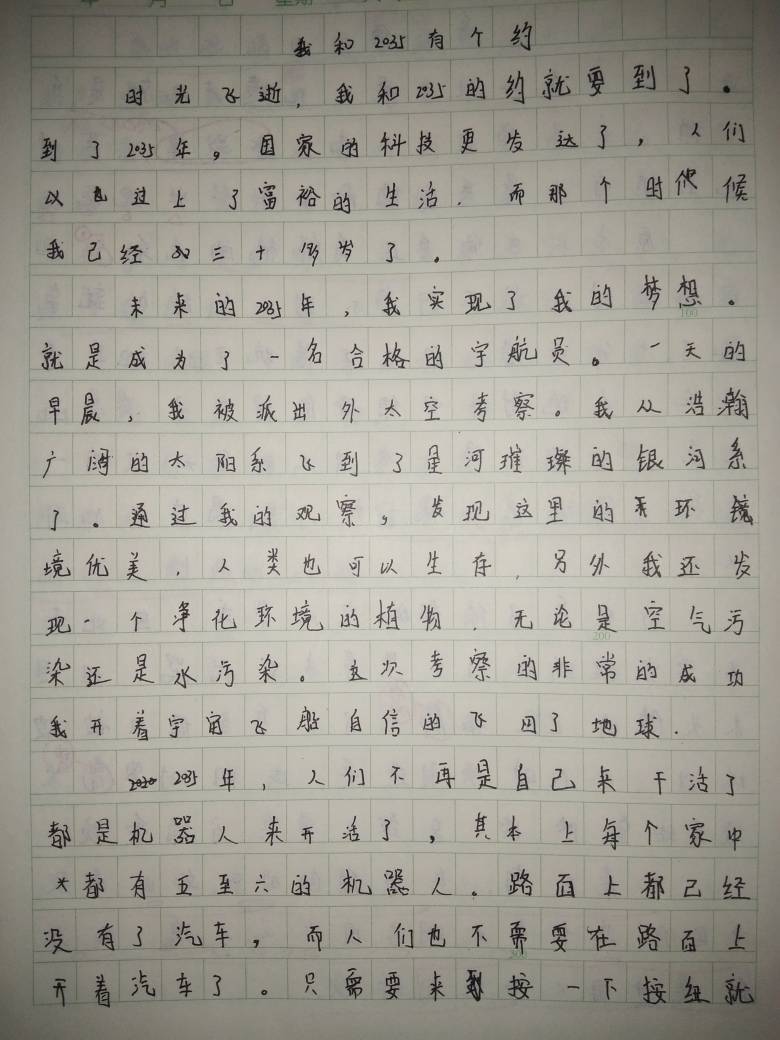 我和2035有个约
时光飞逝，我和2035的约就要到了。
到了2035年，国家的科技更发达了，人们
以也过上了富裕的生活．而那个时候
我已经三十岁了。
未来的2035年，我实现了我的梦想。
就是成为了一名合格的宇航员。一天的
早晨，我被派出外太空考察。我从浩瀚
广阔的太阳系飞到了星河璀璨的银河系
了。通过我的观察，发现这里的环
境优美．人类也可以生存．另外我还发
现一个净化环境的植物．无论是空气污
染还是水污染。这次考察的非常的成功
我开着宇宙飞船自信的飞回了地球．
2035年，人们不再是自己来干活了
都是机器人来开活了，其本上每个家中
都有五至六的机器人．路面上都已经
没有了汽车，而人们也不需要在路面上
开着汽车了。只需要来到按一下按纽就